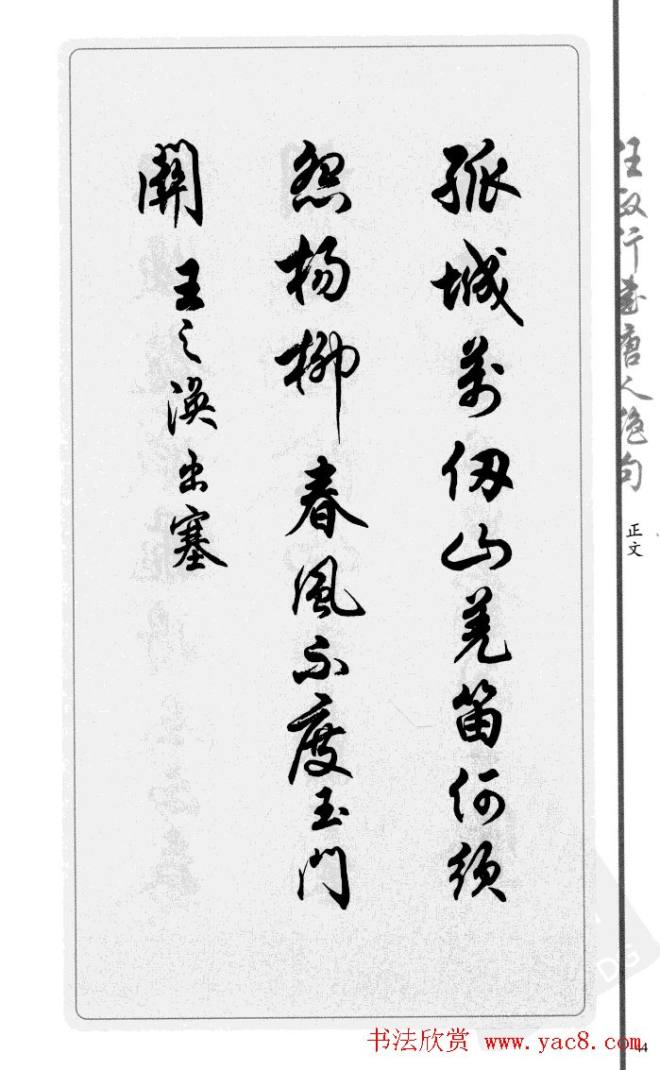 孤城萬仞山羌笛何須
怨楊柳春風不度玉門
關
王之渙出塞
任政行書唐人絕句
正文
书法欣赏 www.yac8.com
44